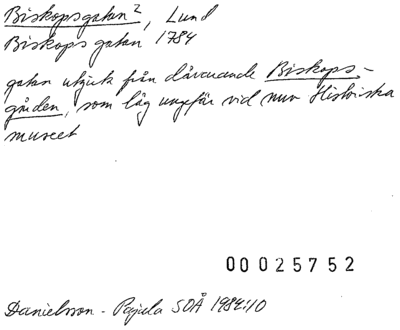 Biskopsgatan 2, Lund
Biskops gatan 1784
gatan utgick från dåvarande Biskops-
gården, som låg ungefär vid nuv Historiska
museet
00 025752
Danielsson - Pajula SOÅ 1984:10